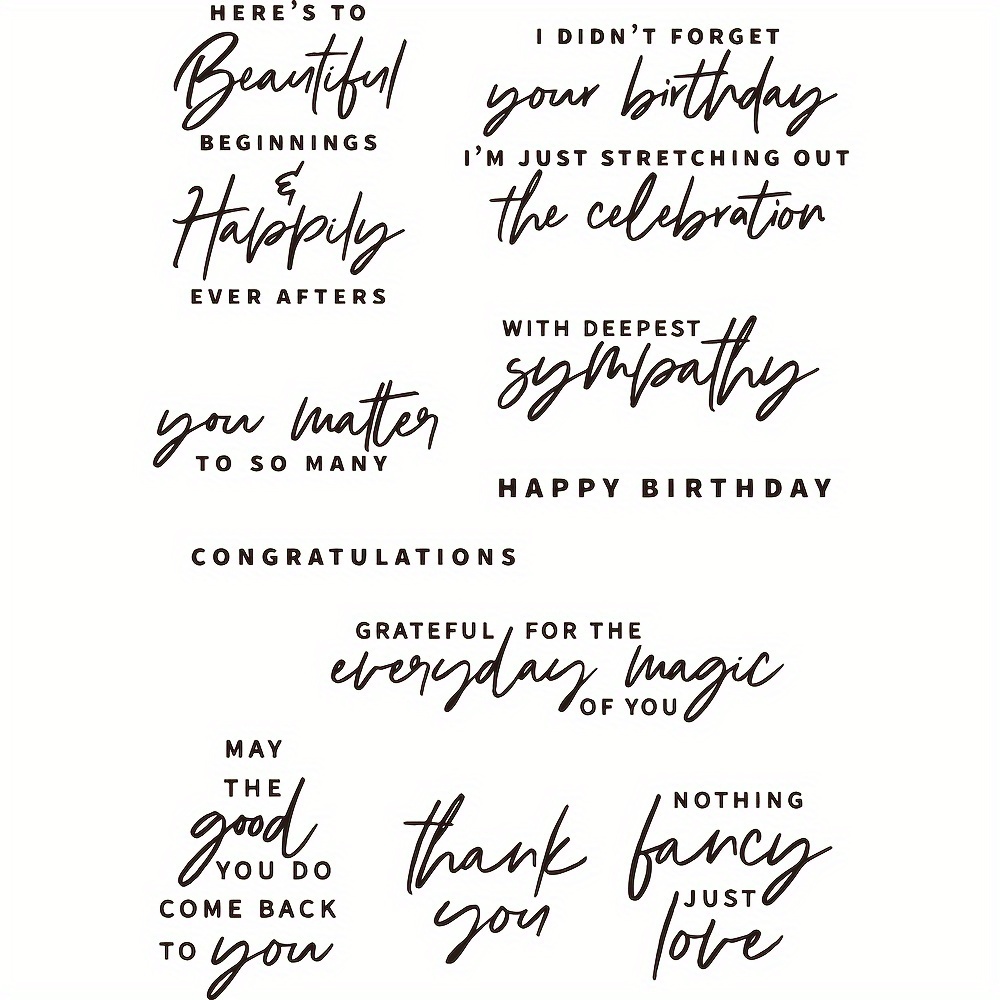 HERE'S TO
Beautiful
BEGINNINGS
&
Happily
EVER AFTERS
I DIDN'T FORGET
your birthday
I'M JUST STRETCHING OUT
the celebration
WITH DEEPEST
sympathy
you matter
TO SO MANY
HAPPY BIRTHDAY
CONGRATULATIONS
GRATEFUL FOR THE
everyday magic
OF YOU
MAY
THE
good
YOU DO
COME BACK
TO you
thank
you
NOTHING
fancy
JUST
love